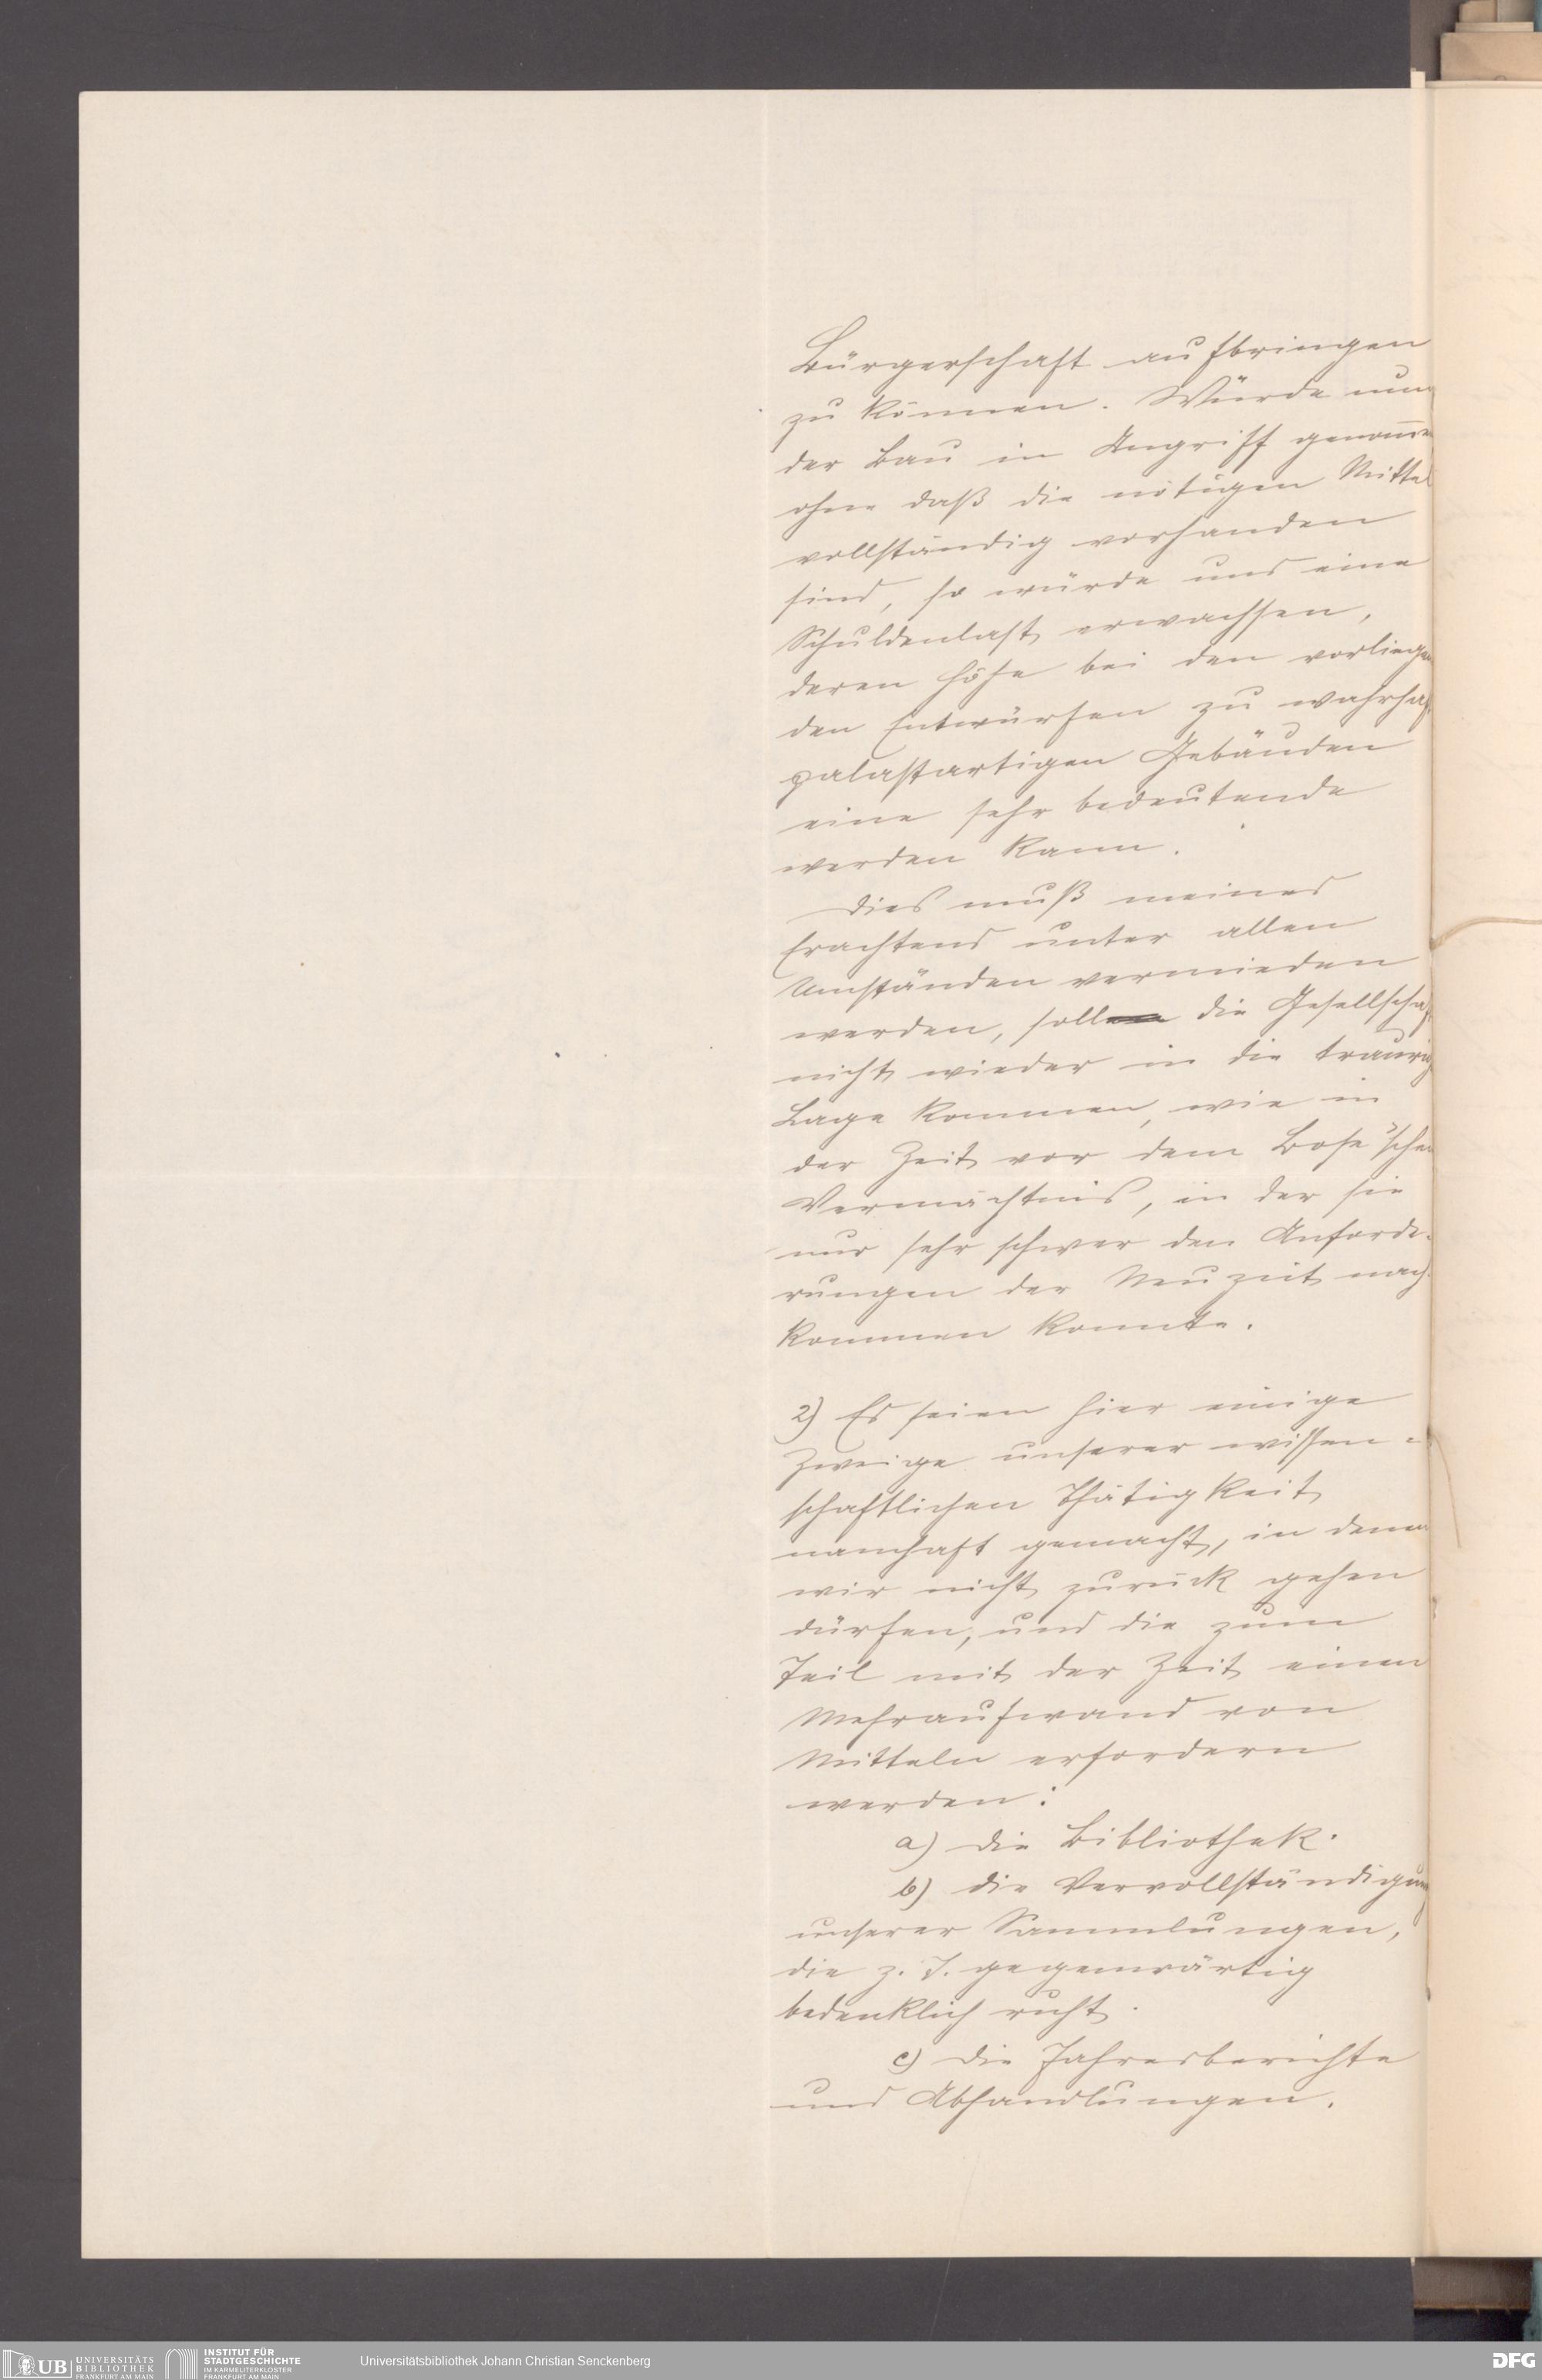 Bürgerschaft aufbringen
zu können. Würde nun
der Bau in Angriff genom̅en
ohne daß die nötigen Mittel
vollständig vorhanden
sind, so würde uns eine
Schuldenlast erwachsen,
deren Höhe bei den vorliegen
den Entwürfen zu wahrhaft
palastartigen Gebäuden
eine sehr bedeutende
werden kann.
Dies muß meines
Erachtens unter allen
Umständen vermieden
werden, soll die Gesellschaft
nicht wieder in die traurige
Lage kommen, wie in
der Zeit vor dem Bose'schen
Vermächtnis, in der sie
nur sehr schwer den Anforde-
rungen der Neuzeit nach-
kommen konnte.
2) Es seien hier einige
Zweige unserer wissen-
schaftlichen Thätigkeit
namhaft gemacht, in denen
wir nicht zurück gehen
dürfen, und die zum
Teil mit der Zeit einen
Mehraufwand von
Mitteln erfordern
werden:
a) die Bibliothek.
b) die Vervollständigung
unserer Sammlungen,
die z. T. gegenwärtig
bedenklich ruht.
c) die Jahresberichte
und Abhandlungen.
UB UNIVERSITÄTS
BIBLIOTHEK
FRANKFURT AM MAIN
INSTITUT FÜR
STADTGESCHICHTE
IM KARMELITERKLOSTER
FRANKFURT AM MAIN
Universitätsbibliothek Johann Christian Senckenberg
DFG